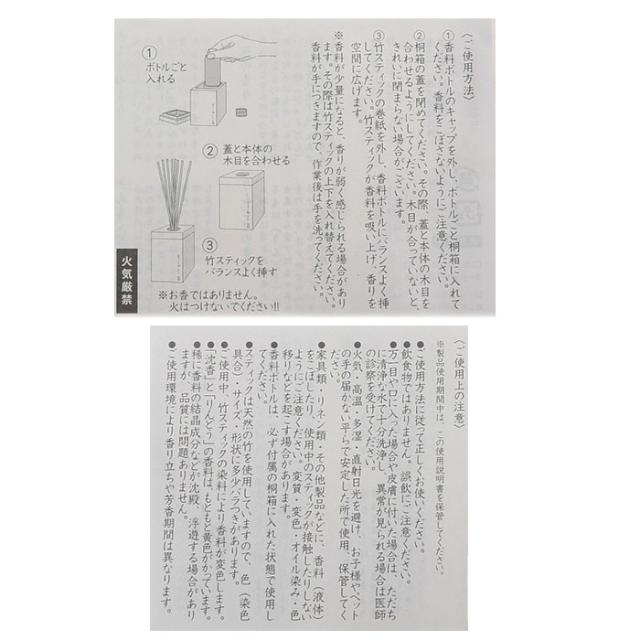 〈ご使用方法〉
①香料ボトルのキャップを外し、ボトルごと桐箱に入れて
ください。香料をこぼさないようにご注意ください。
②桐箱の蓋を閉めてください。その際、蓋と本体の木目を
合わせるようにしてください。木目が合っていないと、
きれいに閉まらない場合がございます。
③竹スティックの巻紙を外し、香料ボトルにバランスよく挿
してください。竹スティックが香料を吸い上げ、香りを
空間に広げます。
※香料が少量になると、香りが弱く感じられる場合があり
ます。その際は竹スティックの上下を入れ替えてください。
香料が手につきますので、作業後は手を洗ってください。
①
ボトルごと
入れる
②蓋と本体の
木目を合わせる
③
竹スティックを
バランスよく挿す
※お香ではありません。
火はつけないでください!!
火気厳禁
〈ご使用上の注意〉
※製品使用期間中は、この使用説明書を保管してください。
●ご使用方法に従って正しくお使いください。
●飲食物ではありません。誤飲にご注意ください。
●万一目や口に入った場合や皮膚に付いた場合は、ただち
に清浄な水で十分洗浄し、異常が見られる場合は医師
の診察を受けてください。
●火気・高温・多湿・直射日光を避け、お子様やペット
の手の届かない平らで安定した所で使用、保管してく
ださい。
●家具類・リネン類・その他製品などに、香料（液体）
をこぼしたり、使用中のスティックが接触したりしない
ようにご注意ください。変質・変色・オイル染み・色
移りなどを起こす場合があります。
●香料ボトルは、必ず付属の桐箱に入れた状態で使用し
てください。
●スティックは天然の竹を使用していますので、色（染色
具合）・サイズ・形状に多少バラつきがあります。
●ご使用中、竹スティックの染料により香料が変色します。
●「沈香」と「りんどう」の香料は、もともと黄色がかっています。
●稀に香料の結晶成分などが沈殿、浮遊する場合があり
ますが、品質には問題ありません。
●ご使用環境により香り立ちや芳香期間は異なります。